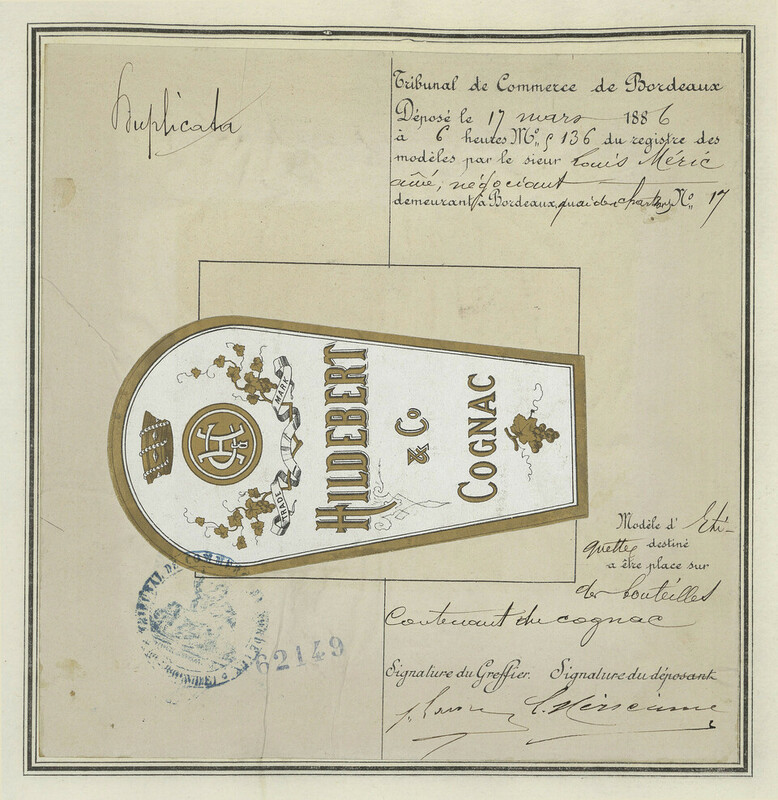 Duplicata
Tribunal de Commerce de Bordeaux
Déposé le 17 mars 1886
à 6 heures M. S 136 du registre des
modèles par le sieur Louis Méric
aîné, négociant
demeurant à Bordeaux, quai des Chartrons No. 17
TRADE MARK
HILDEBERT
& Co
COGNAC
Modèle d' Eti-
quettes destiné
a être place sur
des bouteilles
Contenant du cognac
TRIBUNAL DE COMMERCE
62149
Signature du Greffier. Signature du déposant